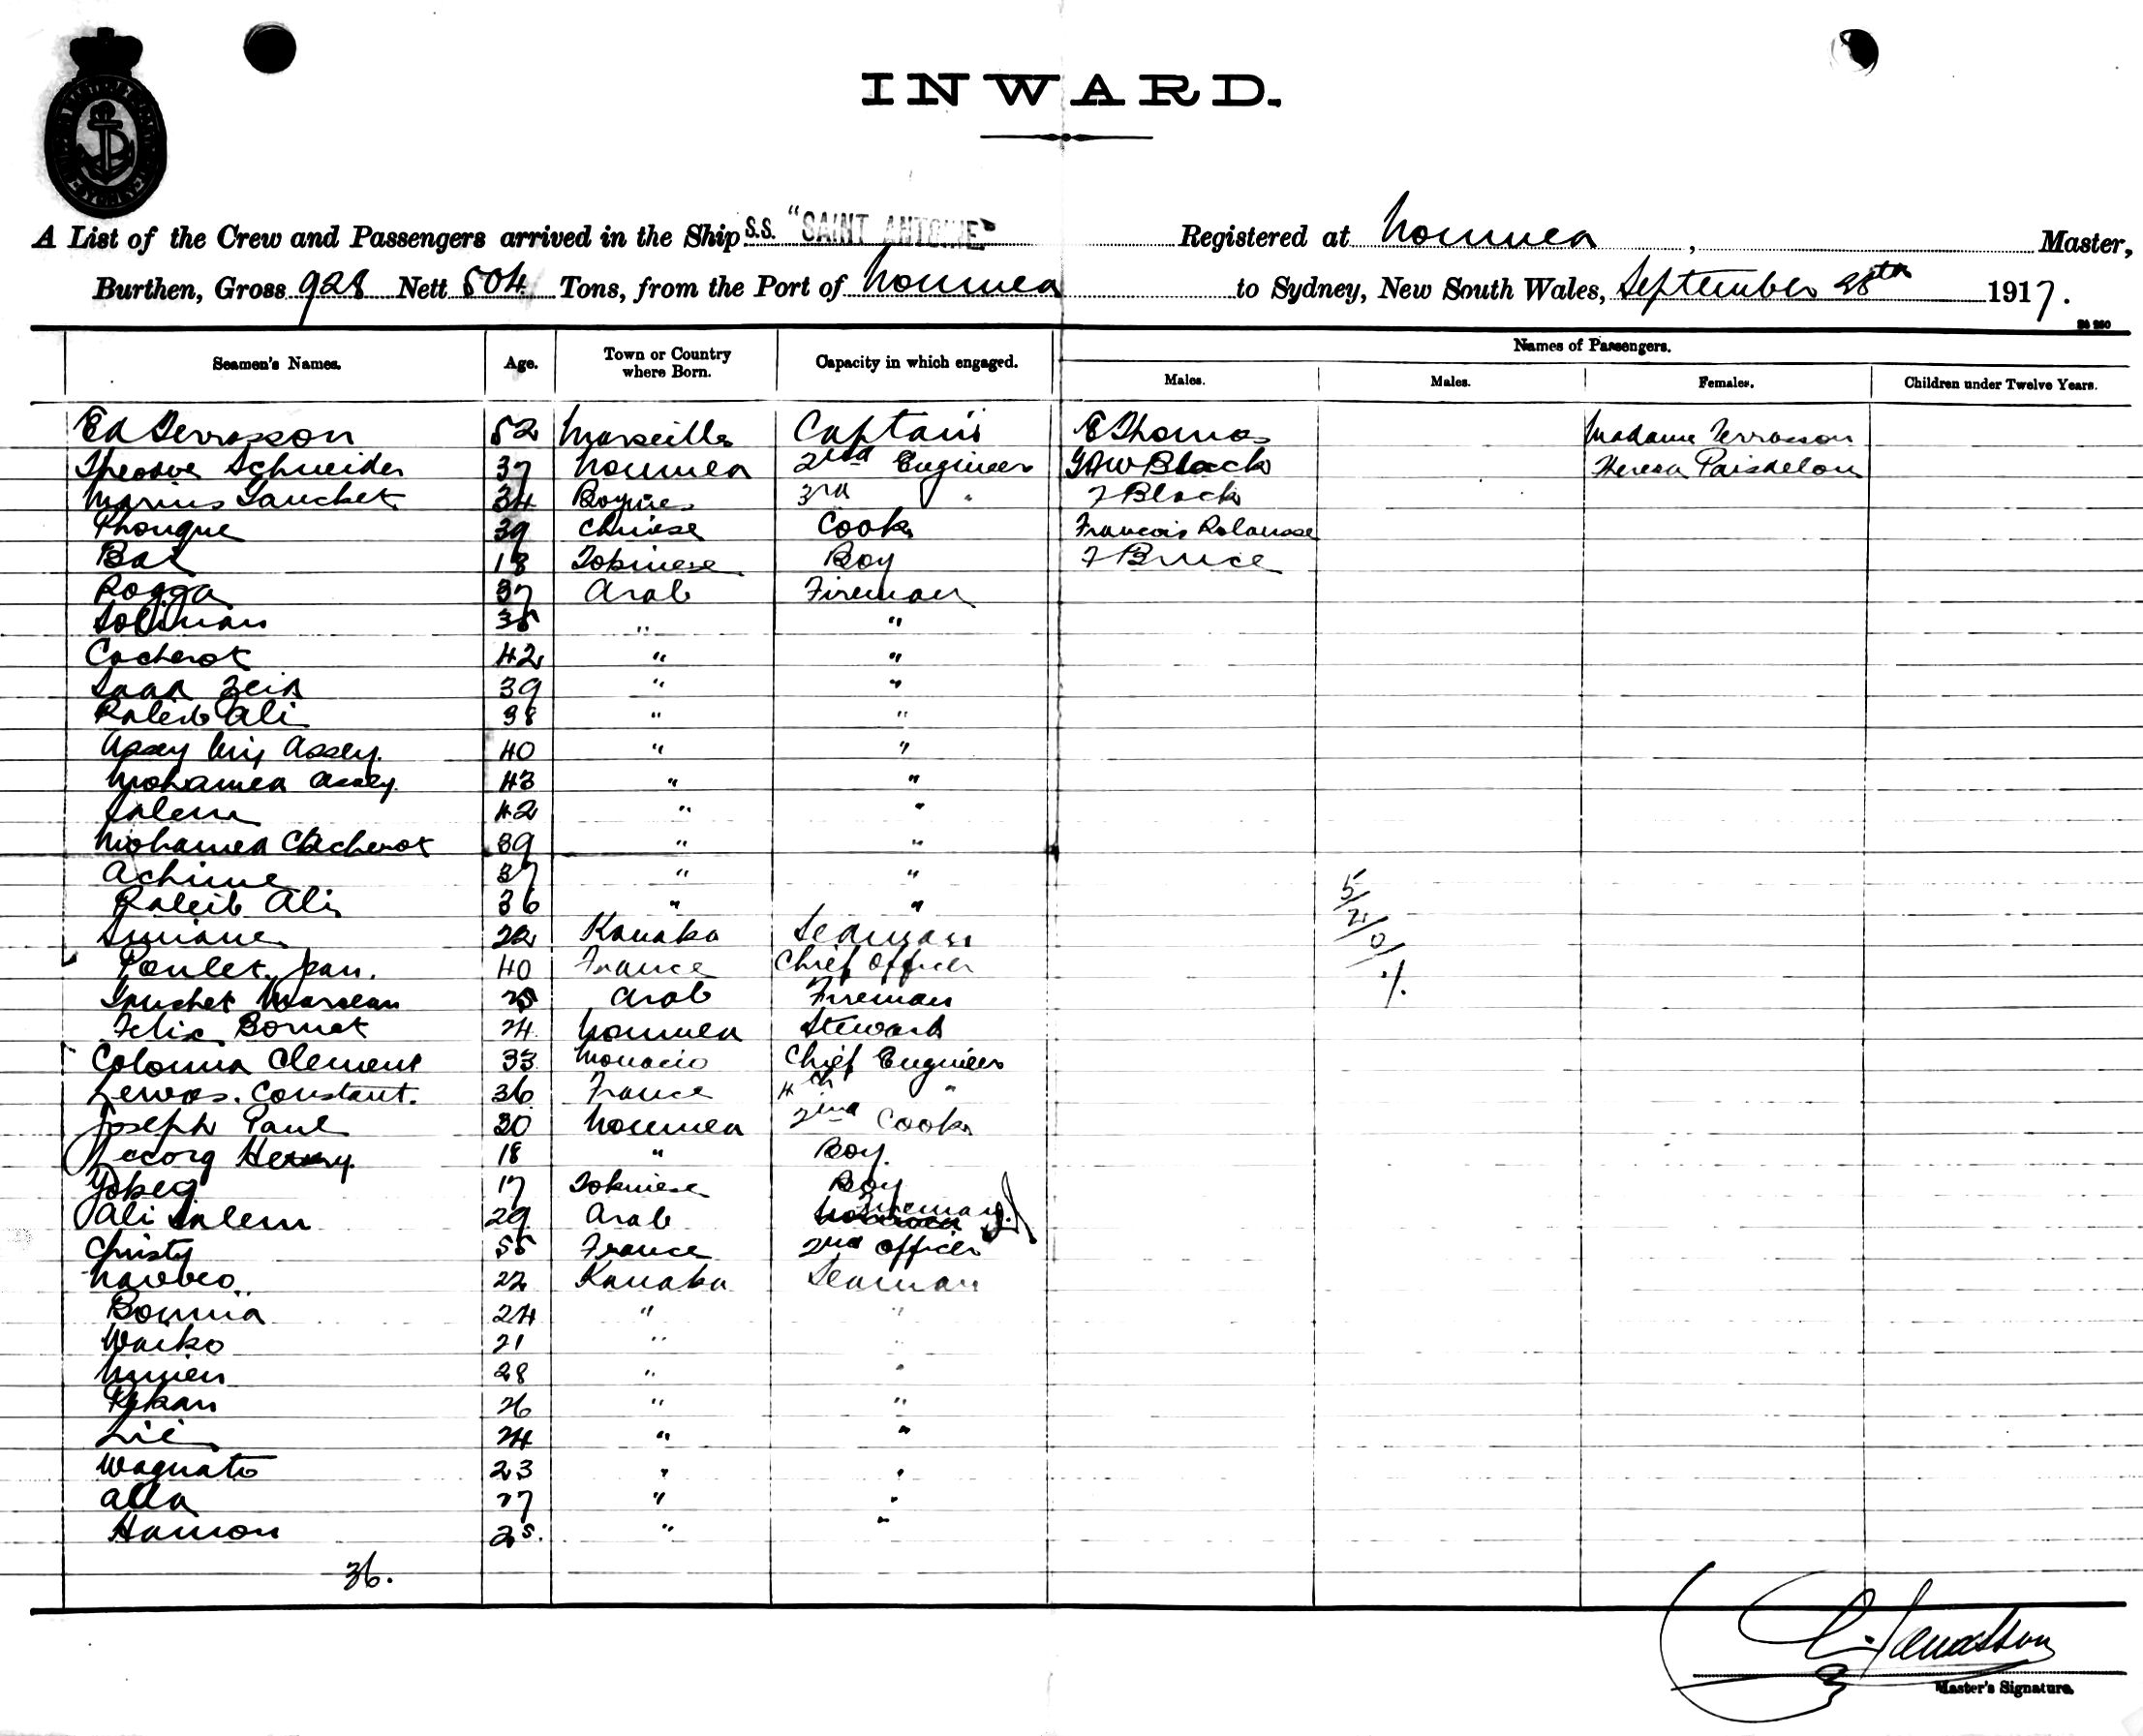 INWARD.
A List of the Crew and Passengers arrived in the Ship S.S. "SAINT ANTOINE" Registered at Noumea, Master,
Burthen, Gross 928 Nett 504 Tons, from the Port of Noumea to Sydney, New South Wales, September 28th 1917.
Seamen's Names. Age. Town or Country where Born. Capacity in which engaged. Names of Passengers.
Males. Males. Females. Children under Twelve Years.
Ed Terrasson 52 Marseille Captain E Thomas Madame Terrasson
Schneider 37 Noumea 2nd Engineer Black Theresa
Marius Gauchet 34 3rd " F Black
Phongue 39 Chinese Cook Francois
Bat 18 Tokinese Boy F Bruce
Rogga 37 Arab Fireman
Soliman 38 " "
Cacherot 42 " "
Saad Zeid 39 " "
Raleib Ali 38 " "
Assey Assey. 40 " "
Mohamed Assey 43 " "
Salem 42 " "
Mohamed Cacherot 39 " "
Achime 37 " "
Raleib Ali 36 " "
22 Kanaka Seaman
Poulet. Jean. 40 France Chief Officer
Gauchet 25 Arab Fireman
Felix Bornet 24 Noumea Steward
Colonna Clement 33 Monacio Chief Engineer
Constant. 36 France 4th "
Joseph Paul 30 Noumea 2nd Cook
Henry 18 " Boy.
17 Tokinese Boy
Ali Salem 29 Arab Fireman
Christy 55 France 2nd Officer
22 Kanaka Seaman
24 " "
Waiko 21 " "
28 " "
Kekan 26 " "
Lie 24 " "
Wagnato 23 " "
Alla 27 " "
Hamon 25. " "
5/2/0/1.
36.
E. Terrasson
Master's Signature.